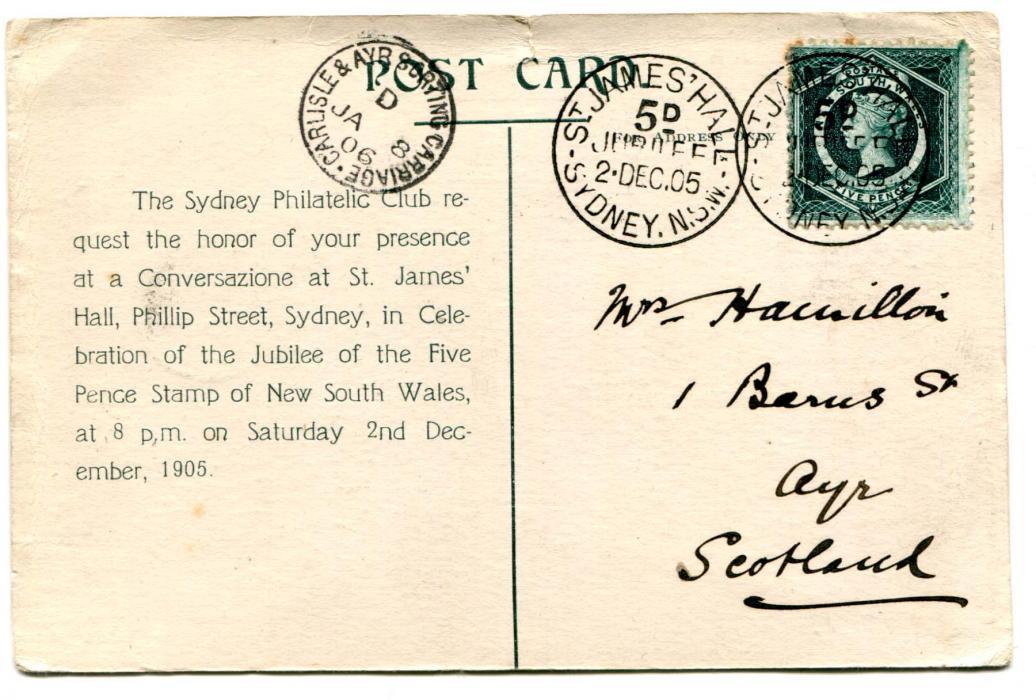 POST CARD
FOR ADDRESS ONLY
CARLISLE & AYR SORTING CARRIAGE
D
JA 8
06
ST. JAMES' HALL
5D
JUBILEE
2·DEC.05
SYDNEY. N.S.W.
POSTAGE
NEW SOUTH WALES
FIVE PENCE
The Sydney Philatelic Club re-
quest the honor of your presence
at a Conversazione at St. James'
Hall, Phillip Street, Sydney, in Cele-
bration of the Jubilee of the Five
Pence Stamp of New South Wales,
at 8 p.m. on Saturday 2nd Dec-
ember, 1905.
Mrs Hamilton
1 Barns St
Ayr
Scotland